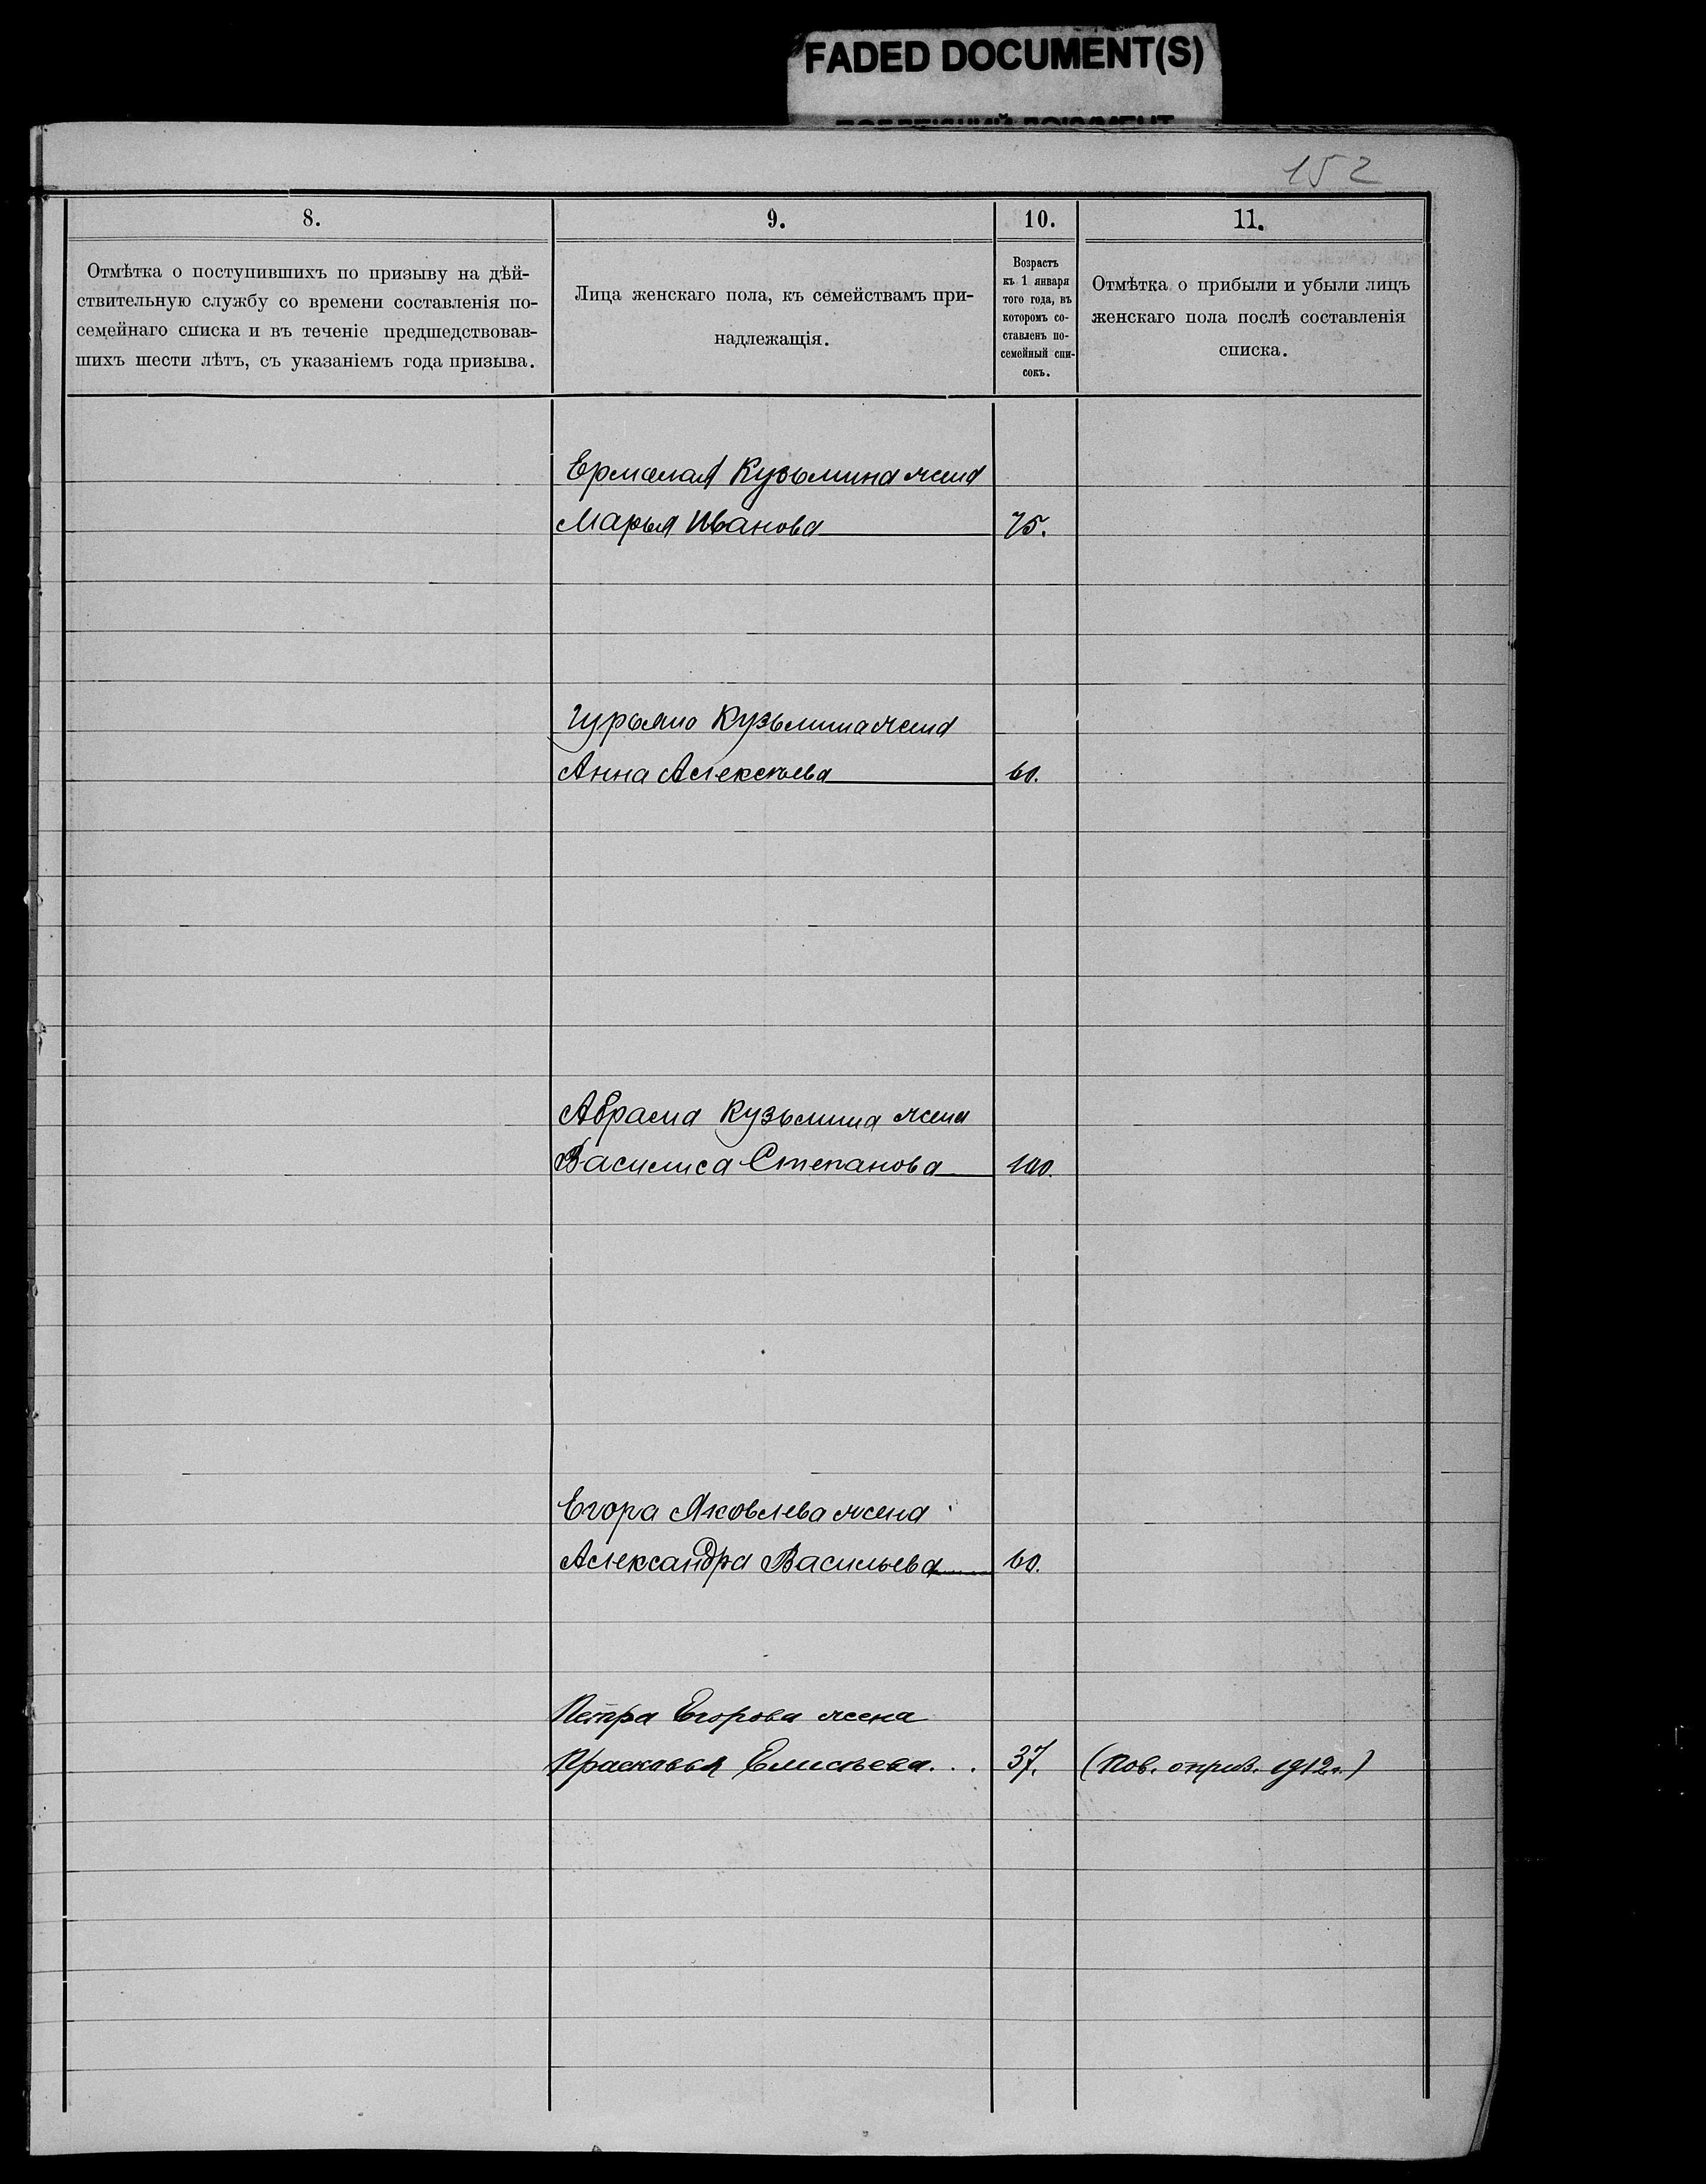 FADED DOCUMENT(S)
152
8.
9.
10.
11.
Отмѣтка о поступившихъ по призыву на дѣй-
ствительную службу со времени составленія по-
семейнаго списка и въ теченіе предшедствовав-
шихъ шести лѣтъ, съ указаніемъ года призыва.
Лица женскаго пола, къ семействамъ при-
надлежащія.
Возрастъ
къ 1 января
того года, въ
которомъ со-
ставленъ по-
семейный спи-
сокъ.
Отмѣтка о прибыли и убыли лицъ
женскаго пола послѣ составленія
списка.
Ермолая Кузьмина жена
Марья Иванова 75.
Кузьмина жена
Анна Алексѣева 60.
Абрама Кузьмина жена
Василиса Степанова 100.
Егора Яковлева жена
Александра Васильева 60.
Петра Егорова жена
Прасковья Елисѣева... 37. (Пов. 1912г.)